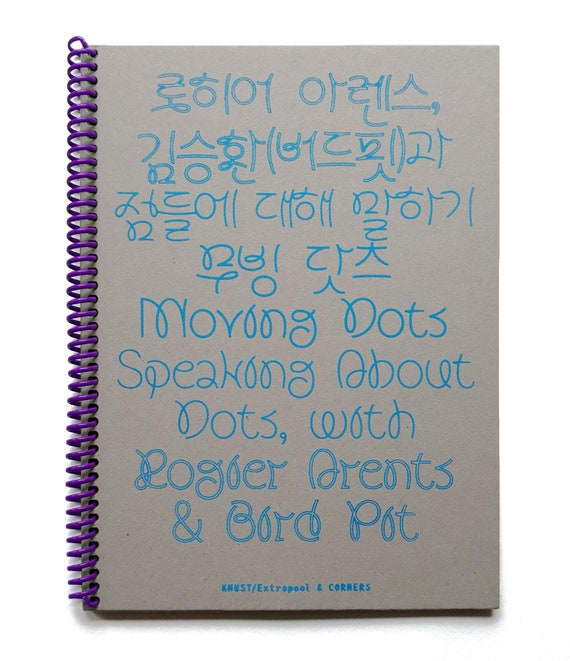 로히어 아렌스,
김승환(버드핏)과
점들에 대해 말하기
무빙 닷츠
Moving Dots
Speaking About
Dots, with
Rogier Arents
& Bird Pit
KNUST/Extrapool & CORNERS